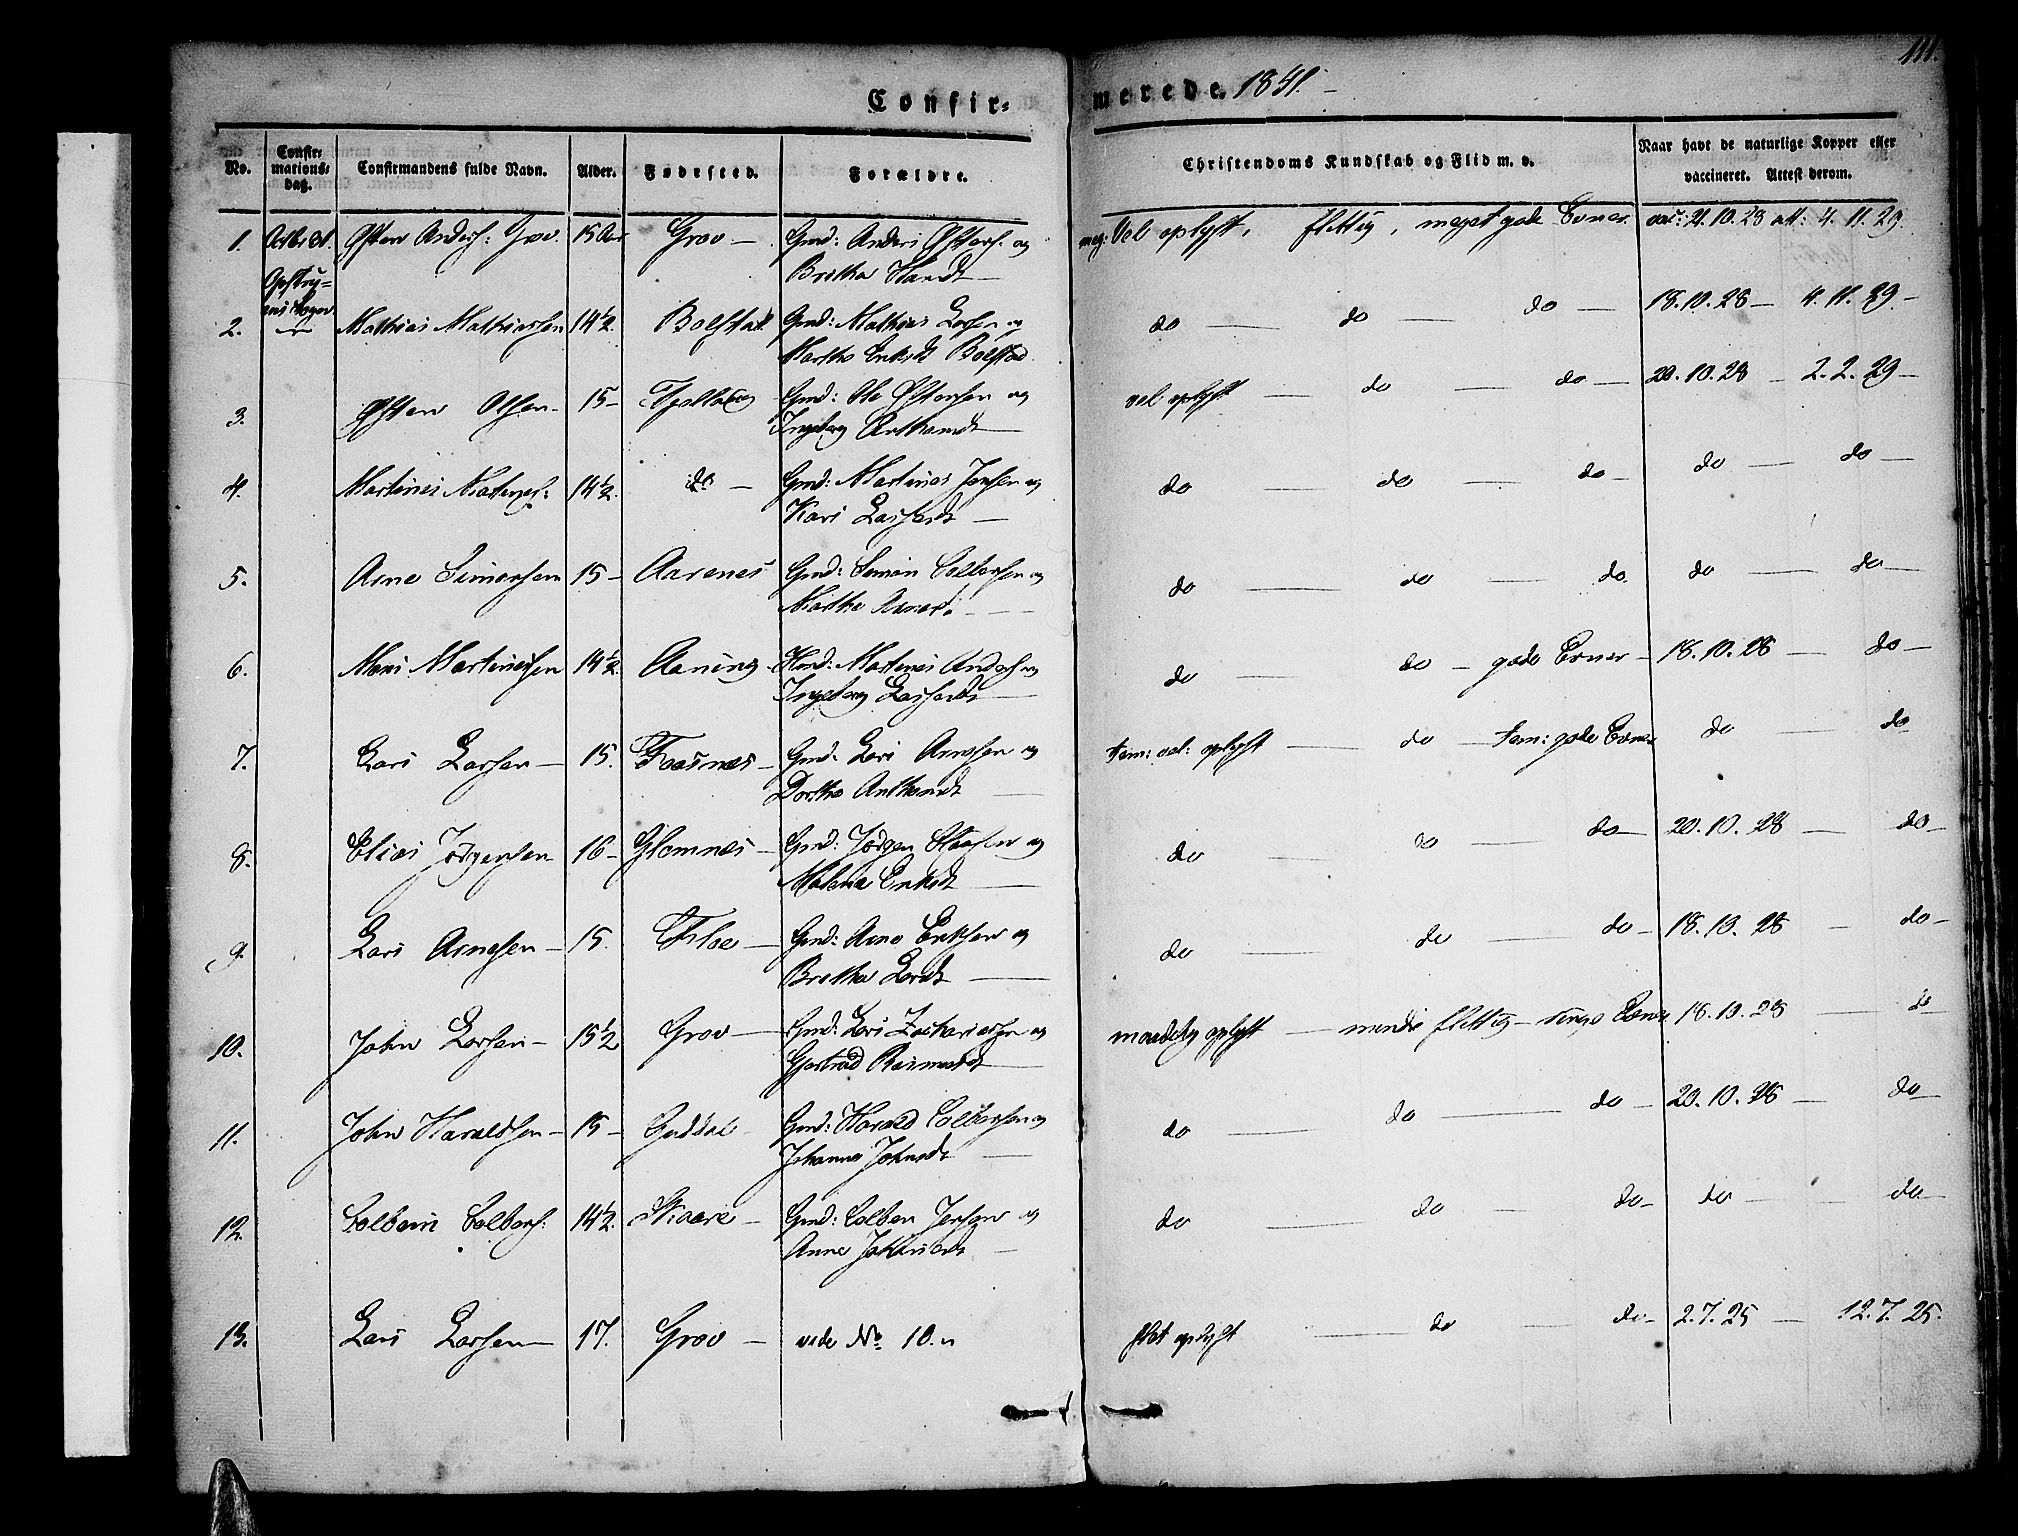 Confirmerede. 1841.
111.
No. Confirmationsdag. Confirmandens fulde Navn. Alder. Fødested. Forældre. Christendoms Kundskab og Flid m. v. Naar havt de naturlige Kopper eller vaccineret. Attest derom.
1. Østen Anders: Grov 15 Aar Grov — Gmd: Anders Østens: og meg: Vel oplyst, flittig, meget gode Evner. vac: 21.10.28 att: 4.11.29.
Britha
2. Mathias Mathiassen 14½ Bolstad Gmd: Mathias Larsen og do — do — do — 18.10.28 — 4.11.29 —
Marthe Eriksdt Bolstad
3. Østen Olsen — 15 — Gmd: Ole Østensen og vel oplyst — do — do — 20.10.28 — 2.2.29 —
Ingeborg
4. Martines Martines: 14½. do — Gmd: Martines Jensen og do — do — do — do — do —
Kari Lassesdt —
5. Arne Simonsen 15 — Aarenes Gmd: Simon Colbensen og do — do — do do — do —
Marthe
6. Mons Martinessen 14½. Aaning Hmd: Martines Anders: og do — do — gode Evner — 18.10.28 — do —
Ingeborg Lassesdt —
7. Lars Larsen — 15. Foesnæs — Gmd: Lars Arnesen og tem: vel: oplyst — do — tem: gode Evner do — do
Dorthe —
8. Elias Jørgensen — 16 — Glomnæs — Gmd: Jørgen og do — do — do — 20.10.28 — do —
Malena Eriksdt —
9. Lars Arnesen — 15. Floe — Gmd: Arne Eriksen og do — do — do — 18.10.28 — do —
Brethe Larsdt —
10. John Larsen — 15½ Grov — Gmd: Lars Zachariassen og maadelig oplyst — mindre flittig — ringe Evner 18.10.28 — do
Gjertrud Rasmusdt —
11. John Haraldsen — 15 — Guddal — Gmd: Harald Colbensen og do — do — do — 20.10.28 — do —
Johanne Johnsdt —
12. Colbein Colbens: 14½. Skaare — Gmd: Colben Jensen og do — do — do — do — do —
Anne —
13. Lars Larsen — 17. Grov — vide No 10. slet oplyst — do — do — 2.7.25 — 12.7.25.